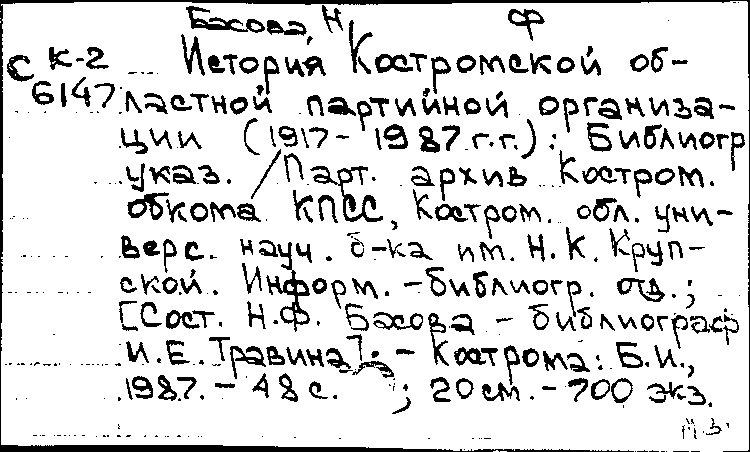 Басова, Н. Ф
С К-2 История Костромской об-
6147 ластной партийной организа-
ции (1917-1987 г.г.): Библиогр
указ. / Парт. архив Костром.
обкома КПСС, Костром. обл. уни-
верс. науч. б-ка им. Н.К. Круп-
ской. Информ.-библиогр. отд.;
[Сост. Н.Ф. Басова - библиограф
И.Е. Травина]. - Кострома: Б.И.,
1987. - 48 с. ; 20 см. - 700 экз.